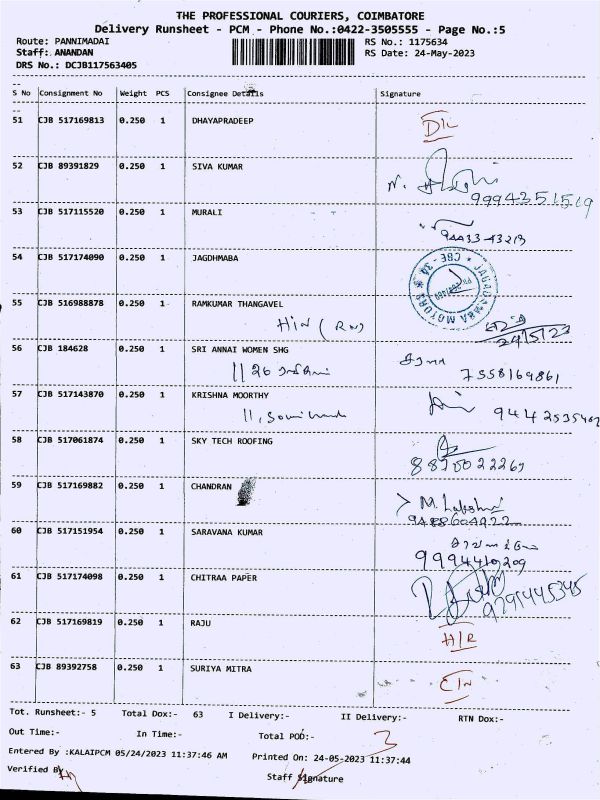 THE PROFESSIONAL COURIERS, COIMBATORE
Delivery Runsheet - PCM - Phone No.:0422-3505555 - Page No.:5
Route: PANNIMADAI RS No.: 1175634
Staff: ANANDAN RS Date: 24-May-2023
DRS No.: DCJB117563405
S No Consignment No Weight PCS Consignee Details Signature
51 CJB 517169813 0.250 1 DHAYAPRADEEP
52 CJB 89391829 0.250 1 SIVA KUMAR
9994351519
53 CJB 517115520 0.250 1 MURALI
54 CJB 517174090 0.250 1 JAGDHMABA
JAGADAMBA MOTORS * CBE - 30 *
55 CJB 516988878 0.250 1 RAMKUMAR THANGAVEL
24/5/23
56 CJB 184628 0.250 1 SRI ANNAI WOMEN SHG
7558169861
57 CJB 517143870 0.250 1 KRISHNA MOORTHY
58 CJB 517061874 0.250 1 SKY TECH ROOFING
59 CJB 517169882 0.250 1 CHANDRAN
60 CJB 517151954 0.250 1 SARAVANA KUMAR
61 CJB 517174098 0.250 1 CHITRAA PAPER
62 CJB 517169819 0.250 1 RAJU
63 CJB 89392758 0.250 1 SURIYA MITRA
Tot. Runsheet:- 5 Total Dox:- 63 I Delivery:- II Delivery:- RTN Dox:-
Out Time:- In Time:- Total POD:- 3
Entered By :KALAIPCM 05/24/2023 11:37:46 AM Printed On: 24-05-2023 11:37:44
Verified By Staff Signature